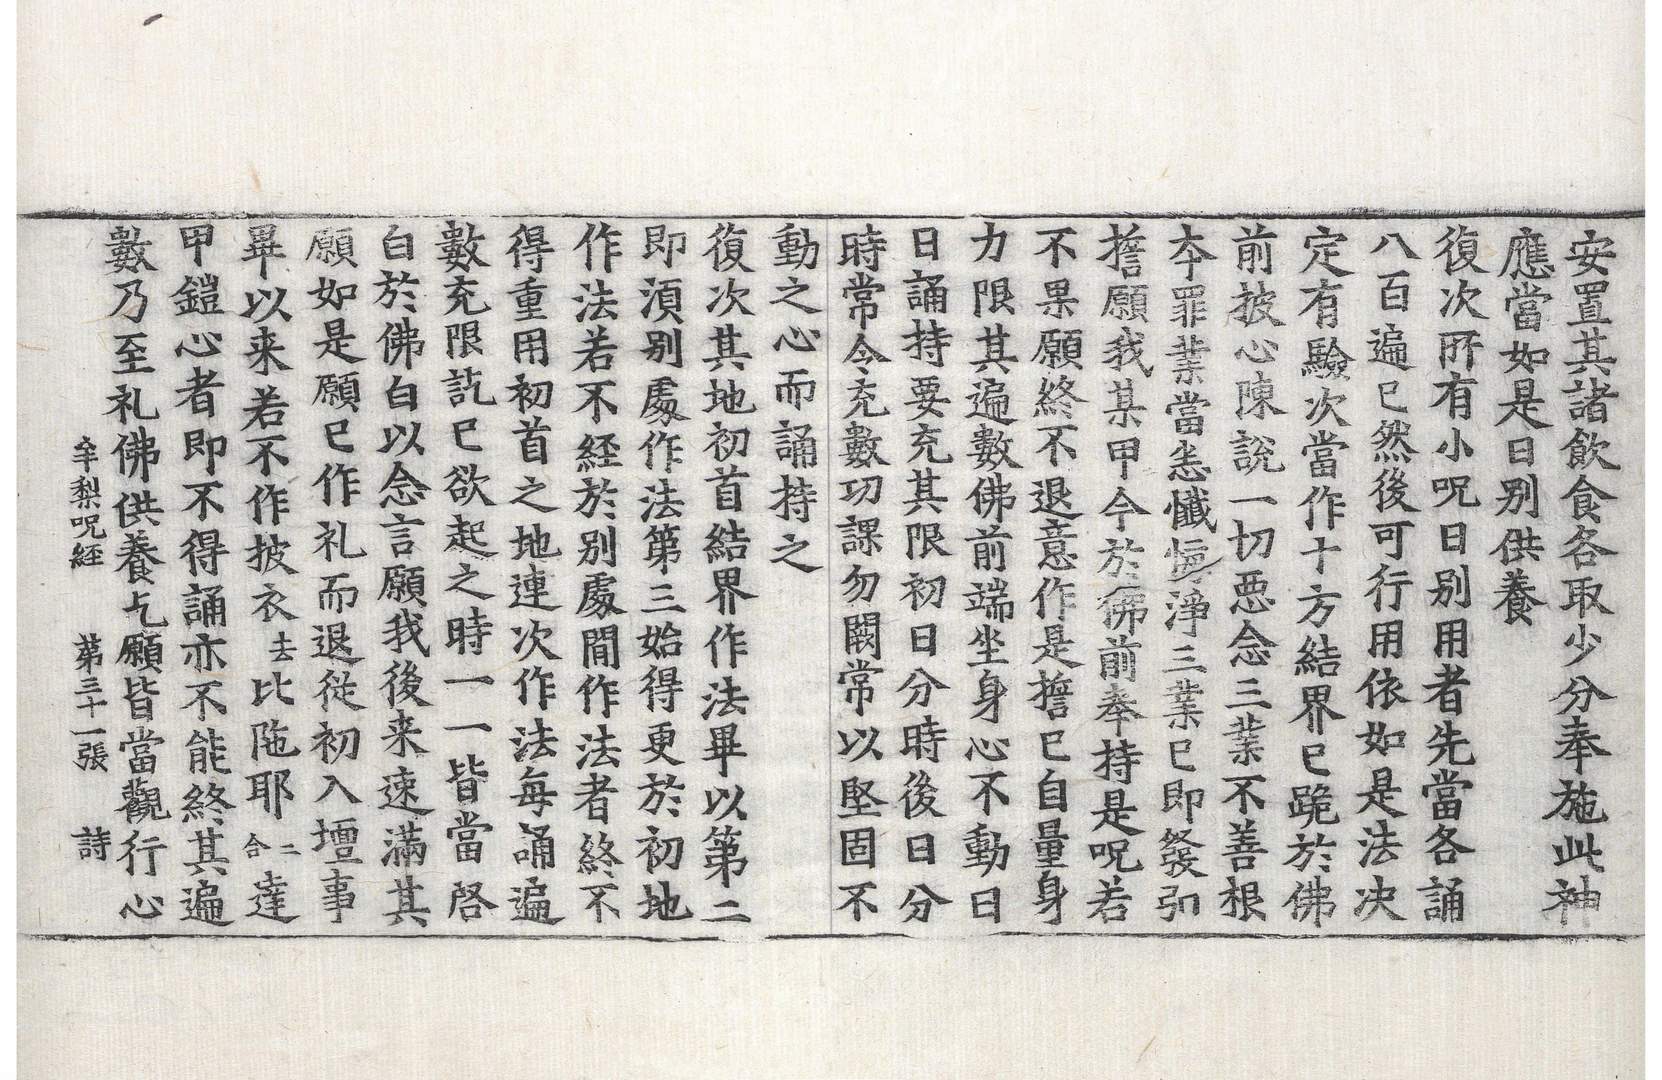 安置其諸飲食各取少分奉施此神
應當如是日别供養
復次所有小呪日别用者先當各誦
八百遍已然後可行用依如是法决
定有驗次當作十方結界已跪於佛
前披心陳説一切惡念三業不善根
本罪業當恙懺悔淨三業已即發弘
擔願我某甲今於佛前奉持是呪若
不果願終不退意作是擔已自量身
力限其遍數佛前端坐身心不動日
日誦持要充其限初日分時後日分
時常令充數功課勿闕常以堅固不
動之心而誦持之
復次其地初首結界作法畢以第二
即湏别處作法第三始得更於初地
作法若不経於别處間作法者終不
得重用初首之地連次作法每誦遍
數充限訖已欲起之時一一皆當啓
白於佛白以念言願我後来速滿其
願如是願已作礼而退従初入壇事
畢以来若不作披衣去比陁耶二合達
甲鎧心者即不得誦亦不能終其遍
數乃至礼佛供養乞願皆當觀行心
牟梨呪経 第三十一張 詩